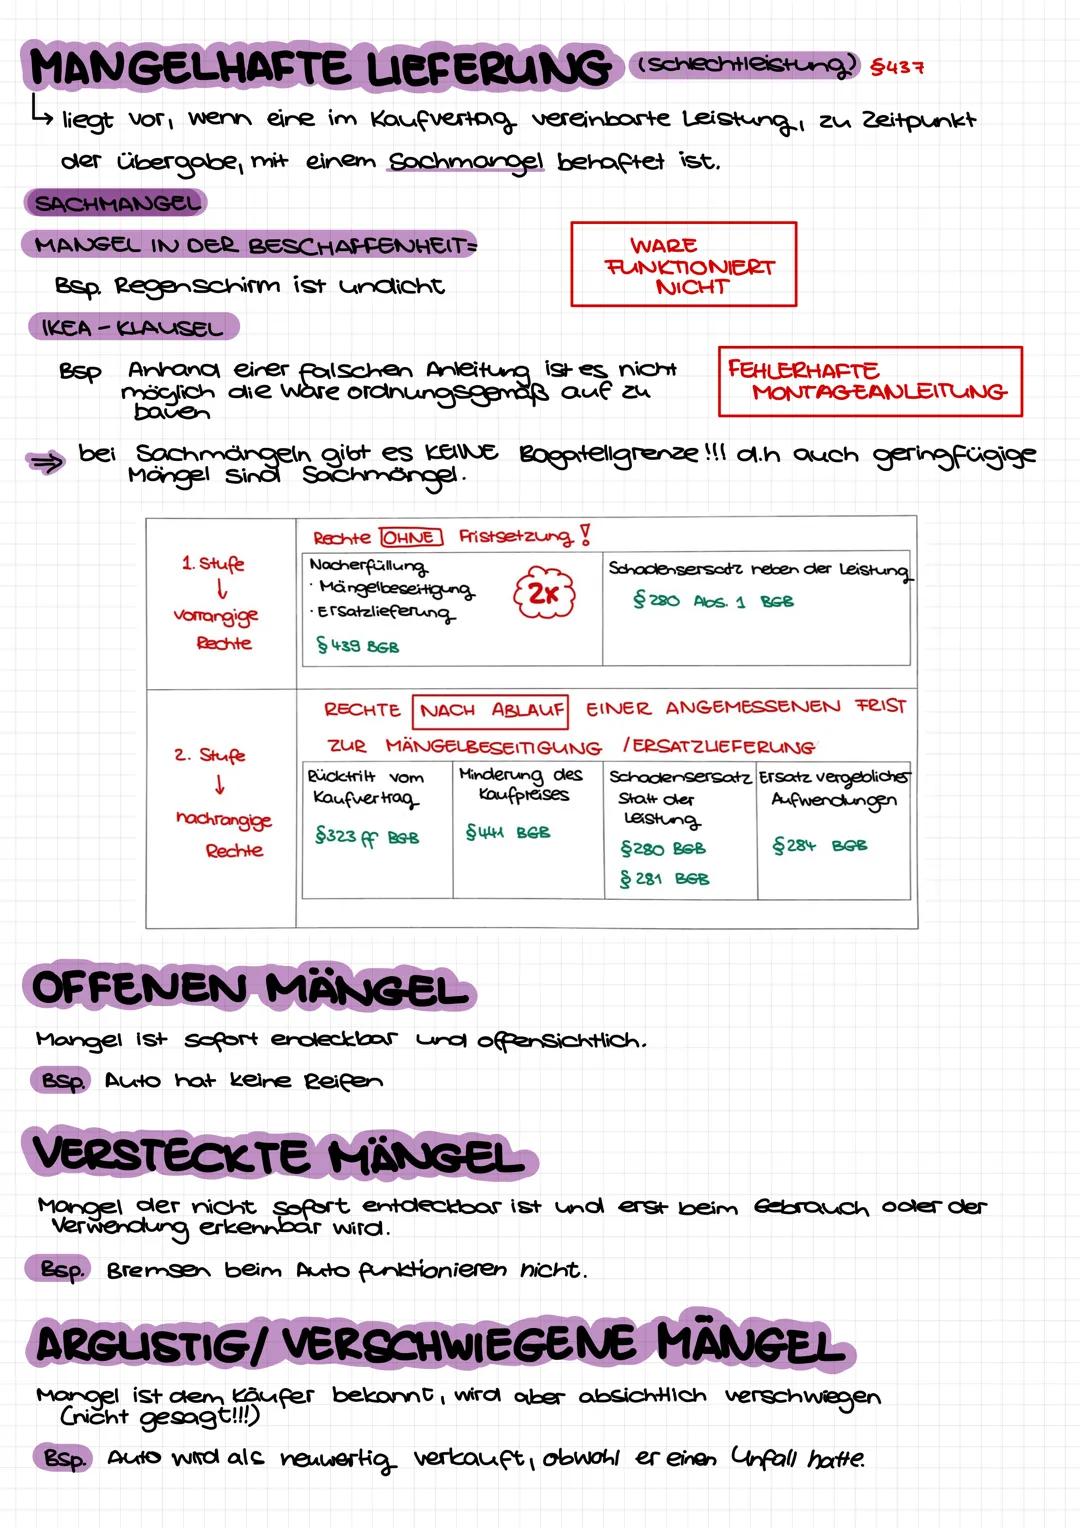 MANGELHAFTE LIEFERUNG (Schlechtleistung) §437
↳ liegt vor, wenn eine im Kaufvertrag vereinbarte Leistung, zu Zeitpunkt
der Übergabe, mit einem Sachmangel behaftet ist.
SACHMANGEL
MANGEL IN DER BESCHAFFENHEIT=
Bsp. Regenschirm ist undicht
WARE
FUNKTIONIERT
NICHT
IKEA - KLAUSEL
Bsp Anhand einer falschen Anleitung ist es nicht
möglich die Ware ordnungsgemäß auf zu
bauen
FEHLERHAFTE
MONTAGEANLEITUNG
⇒ bei Sachmängeln gibt es KEINE Bagatellgrenze!!! d.h auch geringfügige
Mängel sind Sachmängel.
1. Stufe
↓
vorrangige
Rechte
Rechte OHNE Fristsetzung!
Nacherfüllung
· Mängelbeseitigung
· Ersatzlieferung
§439 BGB
2x
Schadensersatz neben der Leistung
§280 Abs. 1 BGB
2. Stufe
↓
nachrangige
Rechte
RECHTE NACH ABLAUF EINER ANGEMESSENEN FRIST
ZUR MÄNGELBESEITIGUNG /ERSATZLIEFERUNG
Rücktritt vom
Kaufvertrag
§323 ff BGB
Minderung des
Kaufpreises
§441 BGB
Schadensersatz
Statt der
Leistung
§280 BGB
§281 BGB
Ersatz vergeblicher
Aufwendungen
§284 BGB
OFFENEN MÄNGEL
Mangel ist sofort endeckbar und offensichtlich.
Bsp. Auto hat keine Reifen
VERSTECKTE MÄNGEL
Mangel der nicht sofort entdeckbar ist und erst beim Gebrauch oder der
Verwendung erkennbar wird.
Bsp. Bremsen beim Auto funktionieren nicht.
ARGLISTIG/ VERSCHWIEGENE MÄNGEL
Mangel ist dem Käufer bekannt, wird aber absichtlich verschwiegen
(nicht gesagt!!!)
Bsp. Auto wird als neuwertig verkauft, obwohl er einen Unfall hatte.